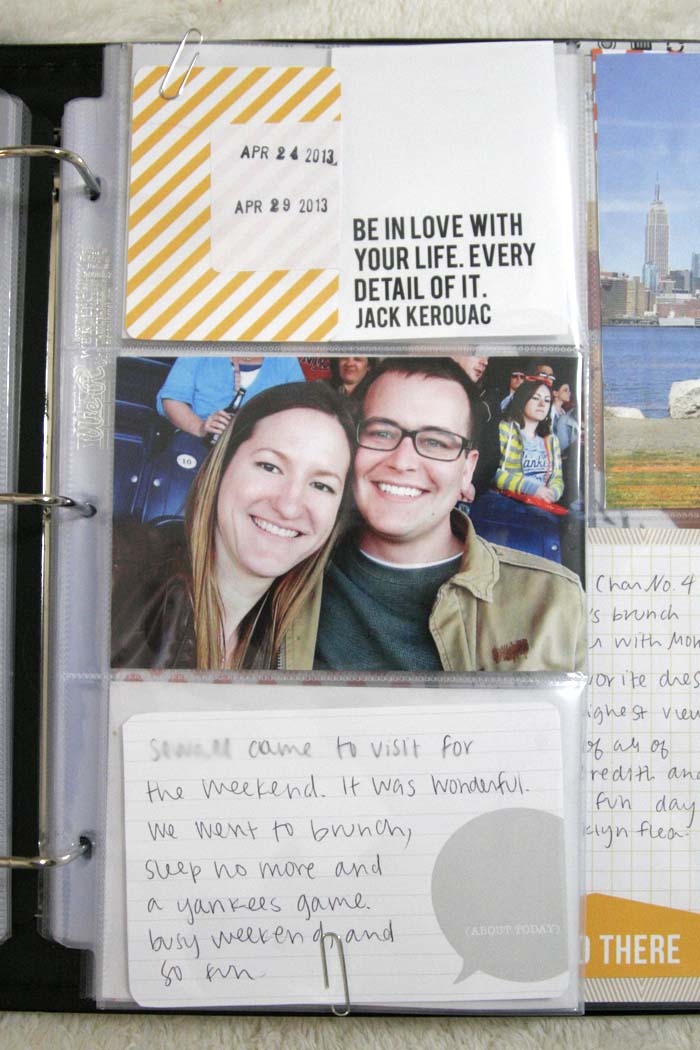 APR 24 2013
APR 29 2013
BE IN LOVE WITH
YOUR LIFE. EVERY
DETAIL OF IT.
JACK KEROUAC
10
came to visit for
the weekend. It was wonderful.
we went to brunch,
sleep no more and
a yankees game.
busy weekend and
so fun
(ABOUT TODAY)
No. 4
's brunch
with Mom
dres
view
of all of
and
fun day
flea.
THERE